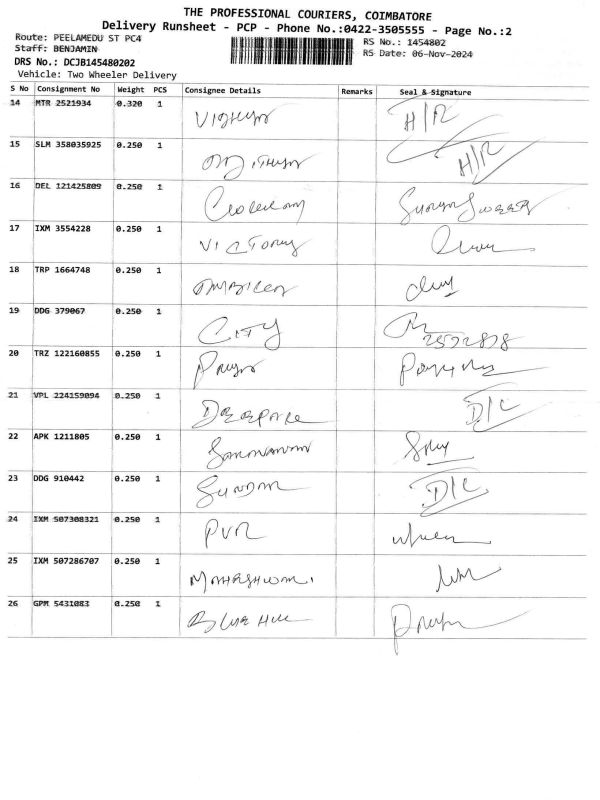 THE PROFESSIONAL COURIERS, COIMBATORE
Delivery Runsheet - PCP - Phone No.:0422-3505555 - Page No.:2
Route: PEELAMEDU ST PC4
RS No.: 1454802
Staff: BENJAMIN
RS Date: 06-Nov-2024
DRS No.: DCJB145480202
Vehicle: Two Wheeler Delivery
S No Consignment No Weight PCS Consignee Details Remarks Seal & Signature
14 MTR 2521934 0.320 1 H/R
15 SLM 358035925 0.250 1 H/R
16 DEL 121425809 0.250 1
17 IXM 3554228 0.250 1 VICTORY
18 TRP 1664748 0.250 1
19 DDG 379067 0.250 1 CITY
20 TRZ 122160855 0.250 1 Priya
21 VPL 224159094 0.250 1 D/C
22 APK 1211805 0.250 1 Saravanan
23 DDG 910442 0.250 1 Sundar D/C
24 IXM 507308321 0.250 1 PVR
25 IXM 507286707 0.250 1
26 GPM 5431083 0.250 1 Blue Hill